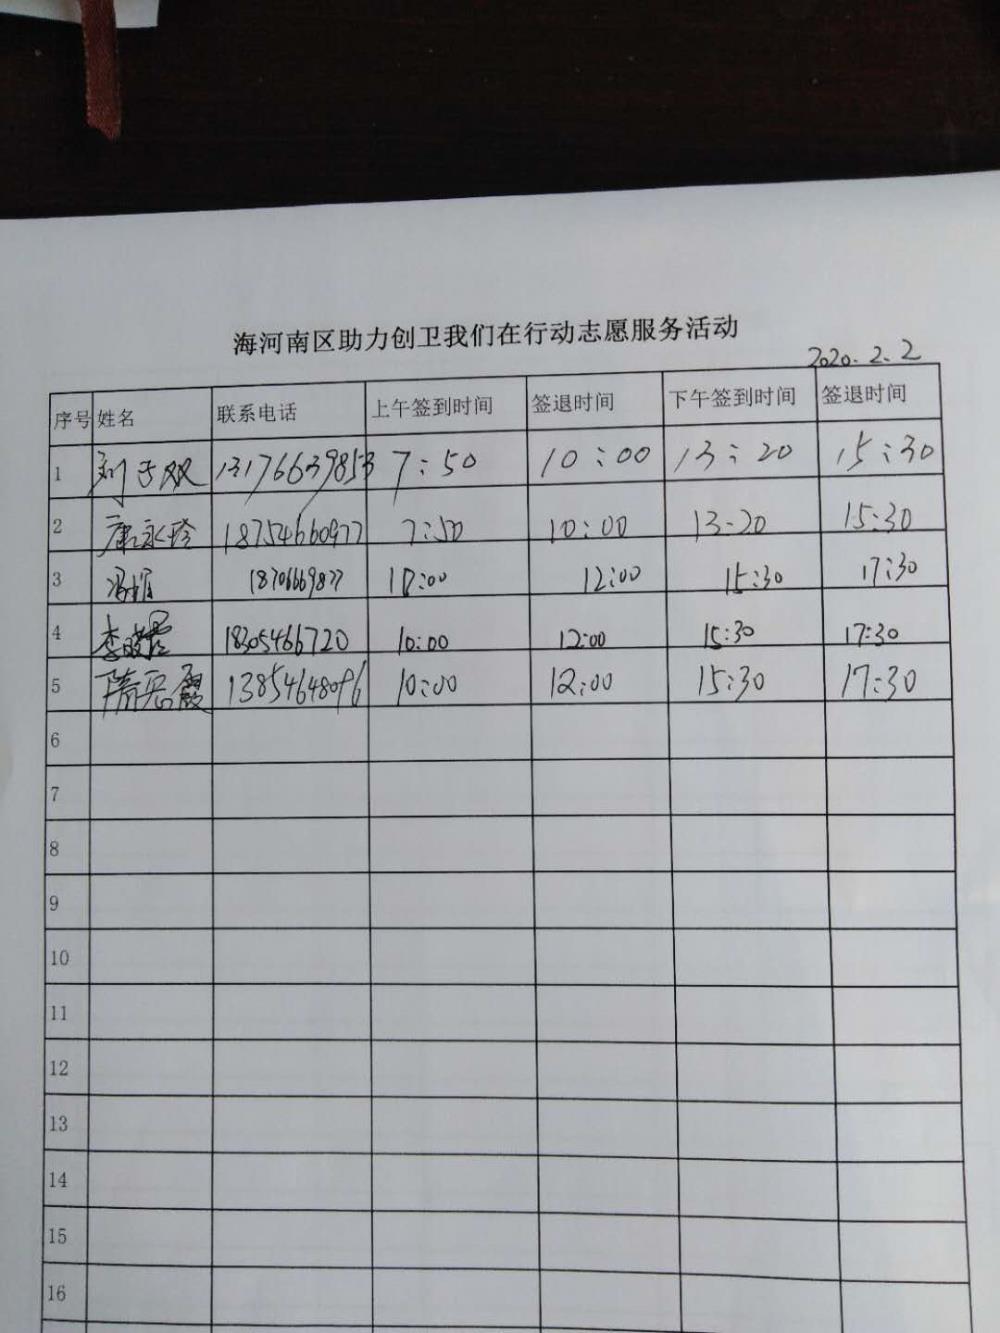 海河南区助力创卫我们在行动志愿服务活动
2020.2.2
序号 姓名 联系电话 上午签到时间 签退时间 下午签到时间 签退时间
1 刘子双 13176639853 7:50 10:00 13:20 15:30
2 康永玲 18754660977 7:50 10:00 13-20 15:30
3 冯 18706669877 10:00 12:00 15:30 17:30
4 李晓霞 18305466720 10:00 12:00 15:30 17:30
5 隋云霞 13854648096 10:00 12:00 15:30 17:30
6
7
8
9
10
11
12
13
14
15
16